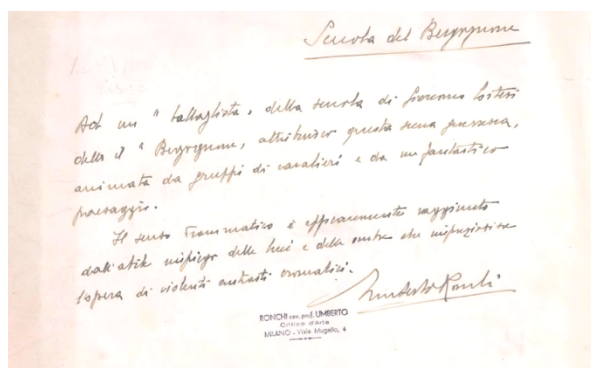 Scuola del Borgognone
Ad un "battaglista" della scuola di Giacomo Cortesi
detto il "Borgognone, attribuisco questa scena guerresca,
animata da gruppi di cavalieri e da un fantastico
paesaggio.
Il senso drammatico è efficacemente raggiunto
dall'abile impiego delle luci e delle ombre che impreziosisce
l'opera di violenti contrasti cromatici.
Umberto Ronchi
RONCHI cav. prof. UMBERTO
Critico d'Arte
MILANO - Viale Mugello, 4